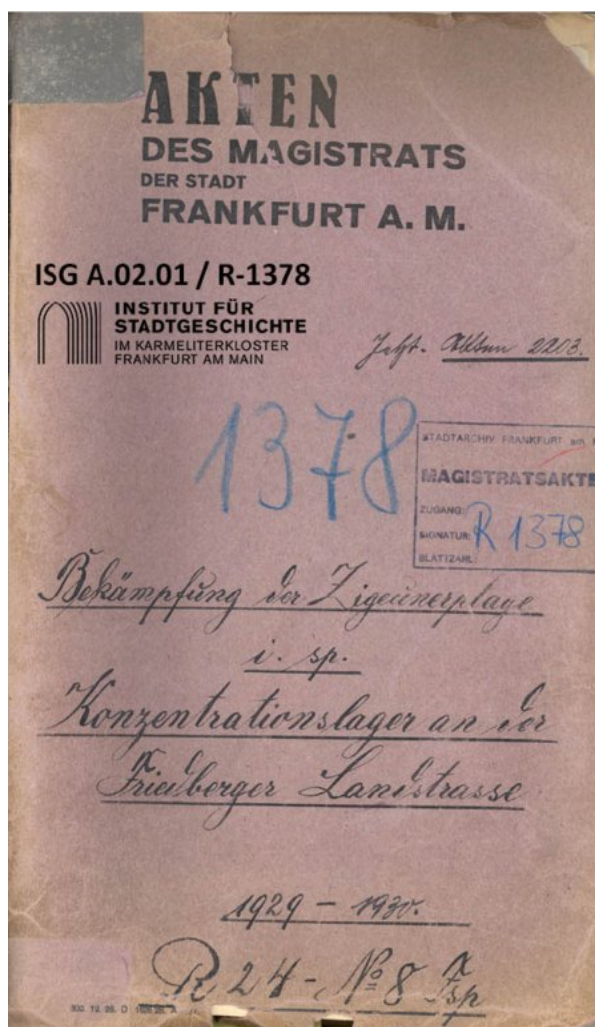 AKTEN
DES MAGISTRATS
DER STADT
FRANKFURT A. M.
ISG A.02.01 / R-1378
INSTITUT FÜR
STADTGESCHICHTE
IM KARMELITERKLOSTER
FRANKFURT AM MAIN
Jetzt. Akten 2203.
1378
STADTARCHIV FRANKFURT am
MAGISTRATSAKTE
ZUGANG:
SIGNATUR: R 1378
BLATTZAHL:
Bekämpfung der Zigeunerplage
i. sp.
Konzentrationslager an der
Friedberger Landstrasse
1929 – 1930.
R 24 - No 8